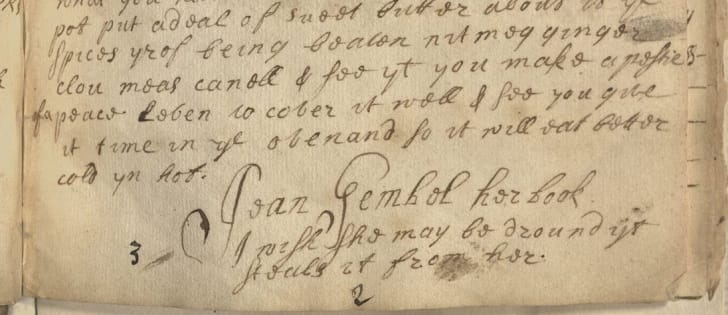 pot put a deal of sweet butter about it ye
spices yrof being beaten nitmeg ginger
clou meas canell & see yt you make a pestie
of a peace Leben to cober it well & see you give
it time in ye oben and so it will eat better
cold yn hot.
Jean Gembel her book
I wish she may be dround yt
3
steals it from her.
2